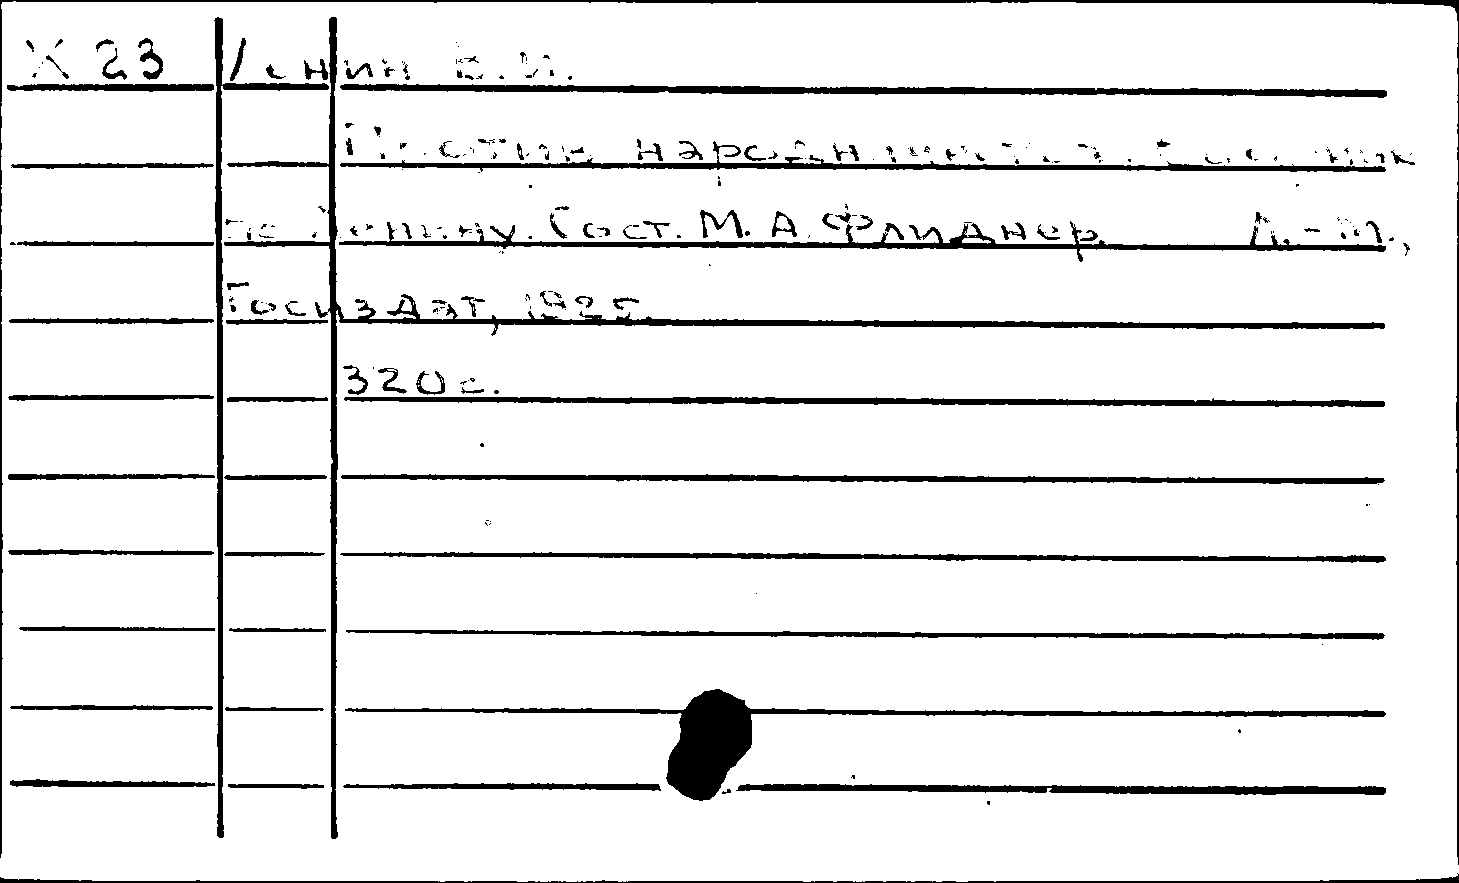 Х 23 Ленин В.И.
Против народничества. Сборник
по Ленину. Сост. М.А. Флиднер. Л.-М.,
Госиздат, 1925.
320 с.